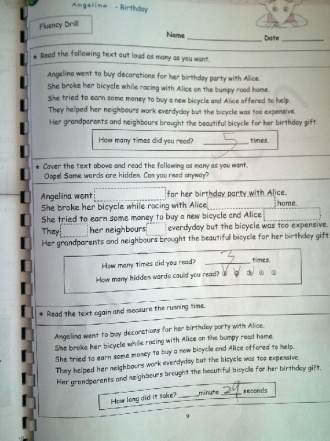 Angelina - Birthday
Fluency Drill
Name
Date
★ Read the following text out loud as many as you want.
Angelina went to buy decorations for her birthday party with Alice.
She broke her bicycle while racing with Alice on the bumpy road home.
She tried to earn some money to buy a new bicycle and Alice offered to help.
They helped her neighbours work everyday but the bicycle was too expensive.
Her grandparents and neighbours brought the beautiful bicycle for her birthday gift.
How many times did you read? 5 times.
★ Cover the text above and read the following as many as you want.
Oops! Some words are hidden. Can you read anyway?
Angelina went for her birthday party with Alice.
She broke her bicycle while racing with Alice home.
She tried to earn some money to buy a new bicycle and Alice
They her neighbours everyday but the bicycle was too expensive.
Her grandparents and neighbours brought the beautiful bicycle for her birthday gift.
How many times did you read? 3 times.
How many hidden words could you read?
★ Read the text again and measure the running time.
Angelina went to buy decorations for her birthday party with Alice.
She broke her bicycle while racing with Alice on the bumpy road home.
She tried to earn some money to buy a new bicycle and Alice offered to help.
They helped her neighbours work everyday but the bicycle was too expensive.
Her grandparents and neighbours brought the beautiful bicycle for her birthday gift.
How long did it take? minute 24 seconds